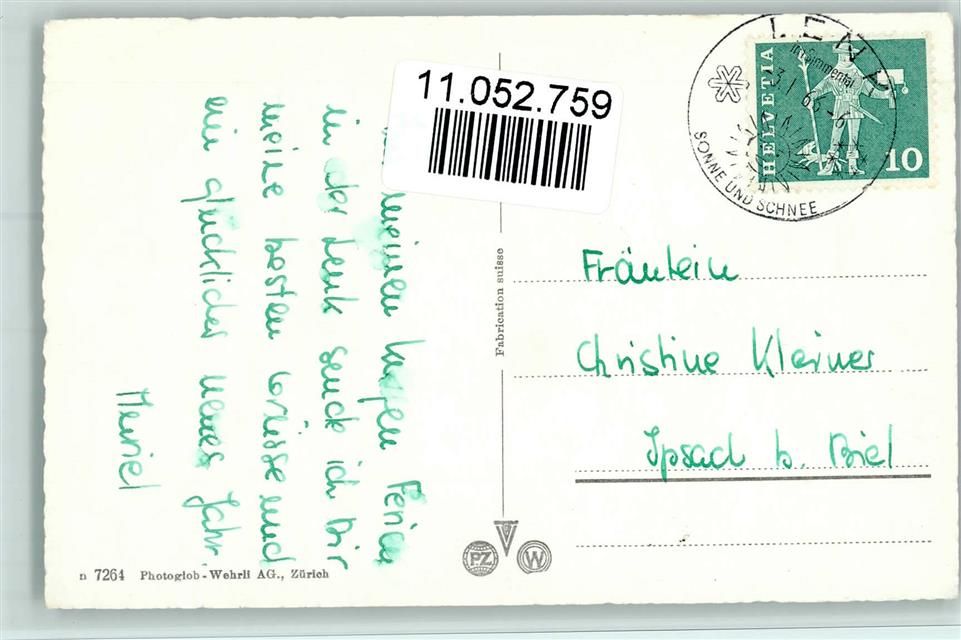 11.052.759
meinen kurzen Ferien
in der Lenk sende ich Dir
meine besten Grüsse und
ein glückliches neues Jahr.
Muriel
LENK
im Simmental
3.1.66-6
SONNE UND SCHNEE
HELVETIA
10
Fräulein
Christine Kleiner
Ipsach b. Biel
Fabrication suisse
PZ
W
n 7264 Photoglob-Wehrli AG., Zürich